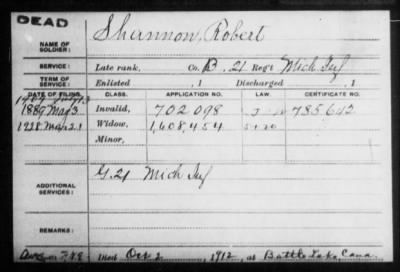 DEAD
Shannon, Robert
NAME OF SOLDIER:
SERVICE: Late rank, Co. B. 21 Reg't Mich Inf
TERM OF SERVICE: Enlisted , 1 Discharged , 1
DATE OF FILING. CLASS. APPLICATION NO. LAW. CERTIFICATE NO.
1889 May 3 Invalid, 702098 785642
1928 Widow, 1,608,454
Minor,
ADDITIONAL SERVICES: G. 21 Mich Inf
REMARKS:
Died Oct 2, 1912, at Battle Lake, Cana.